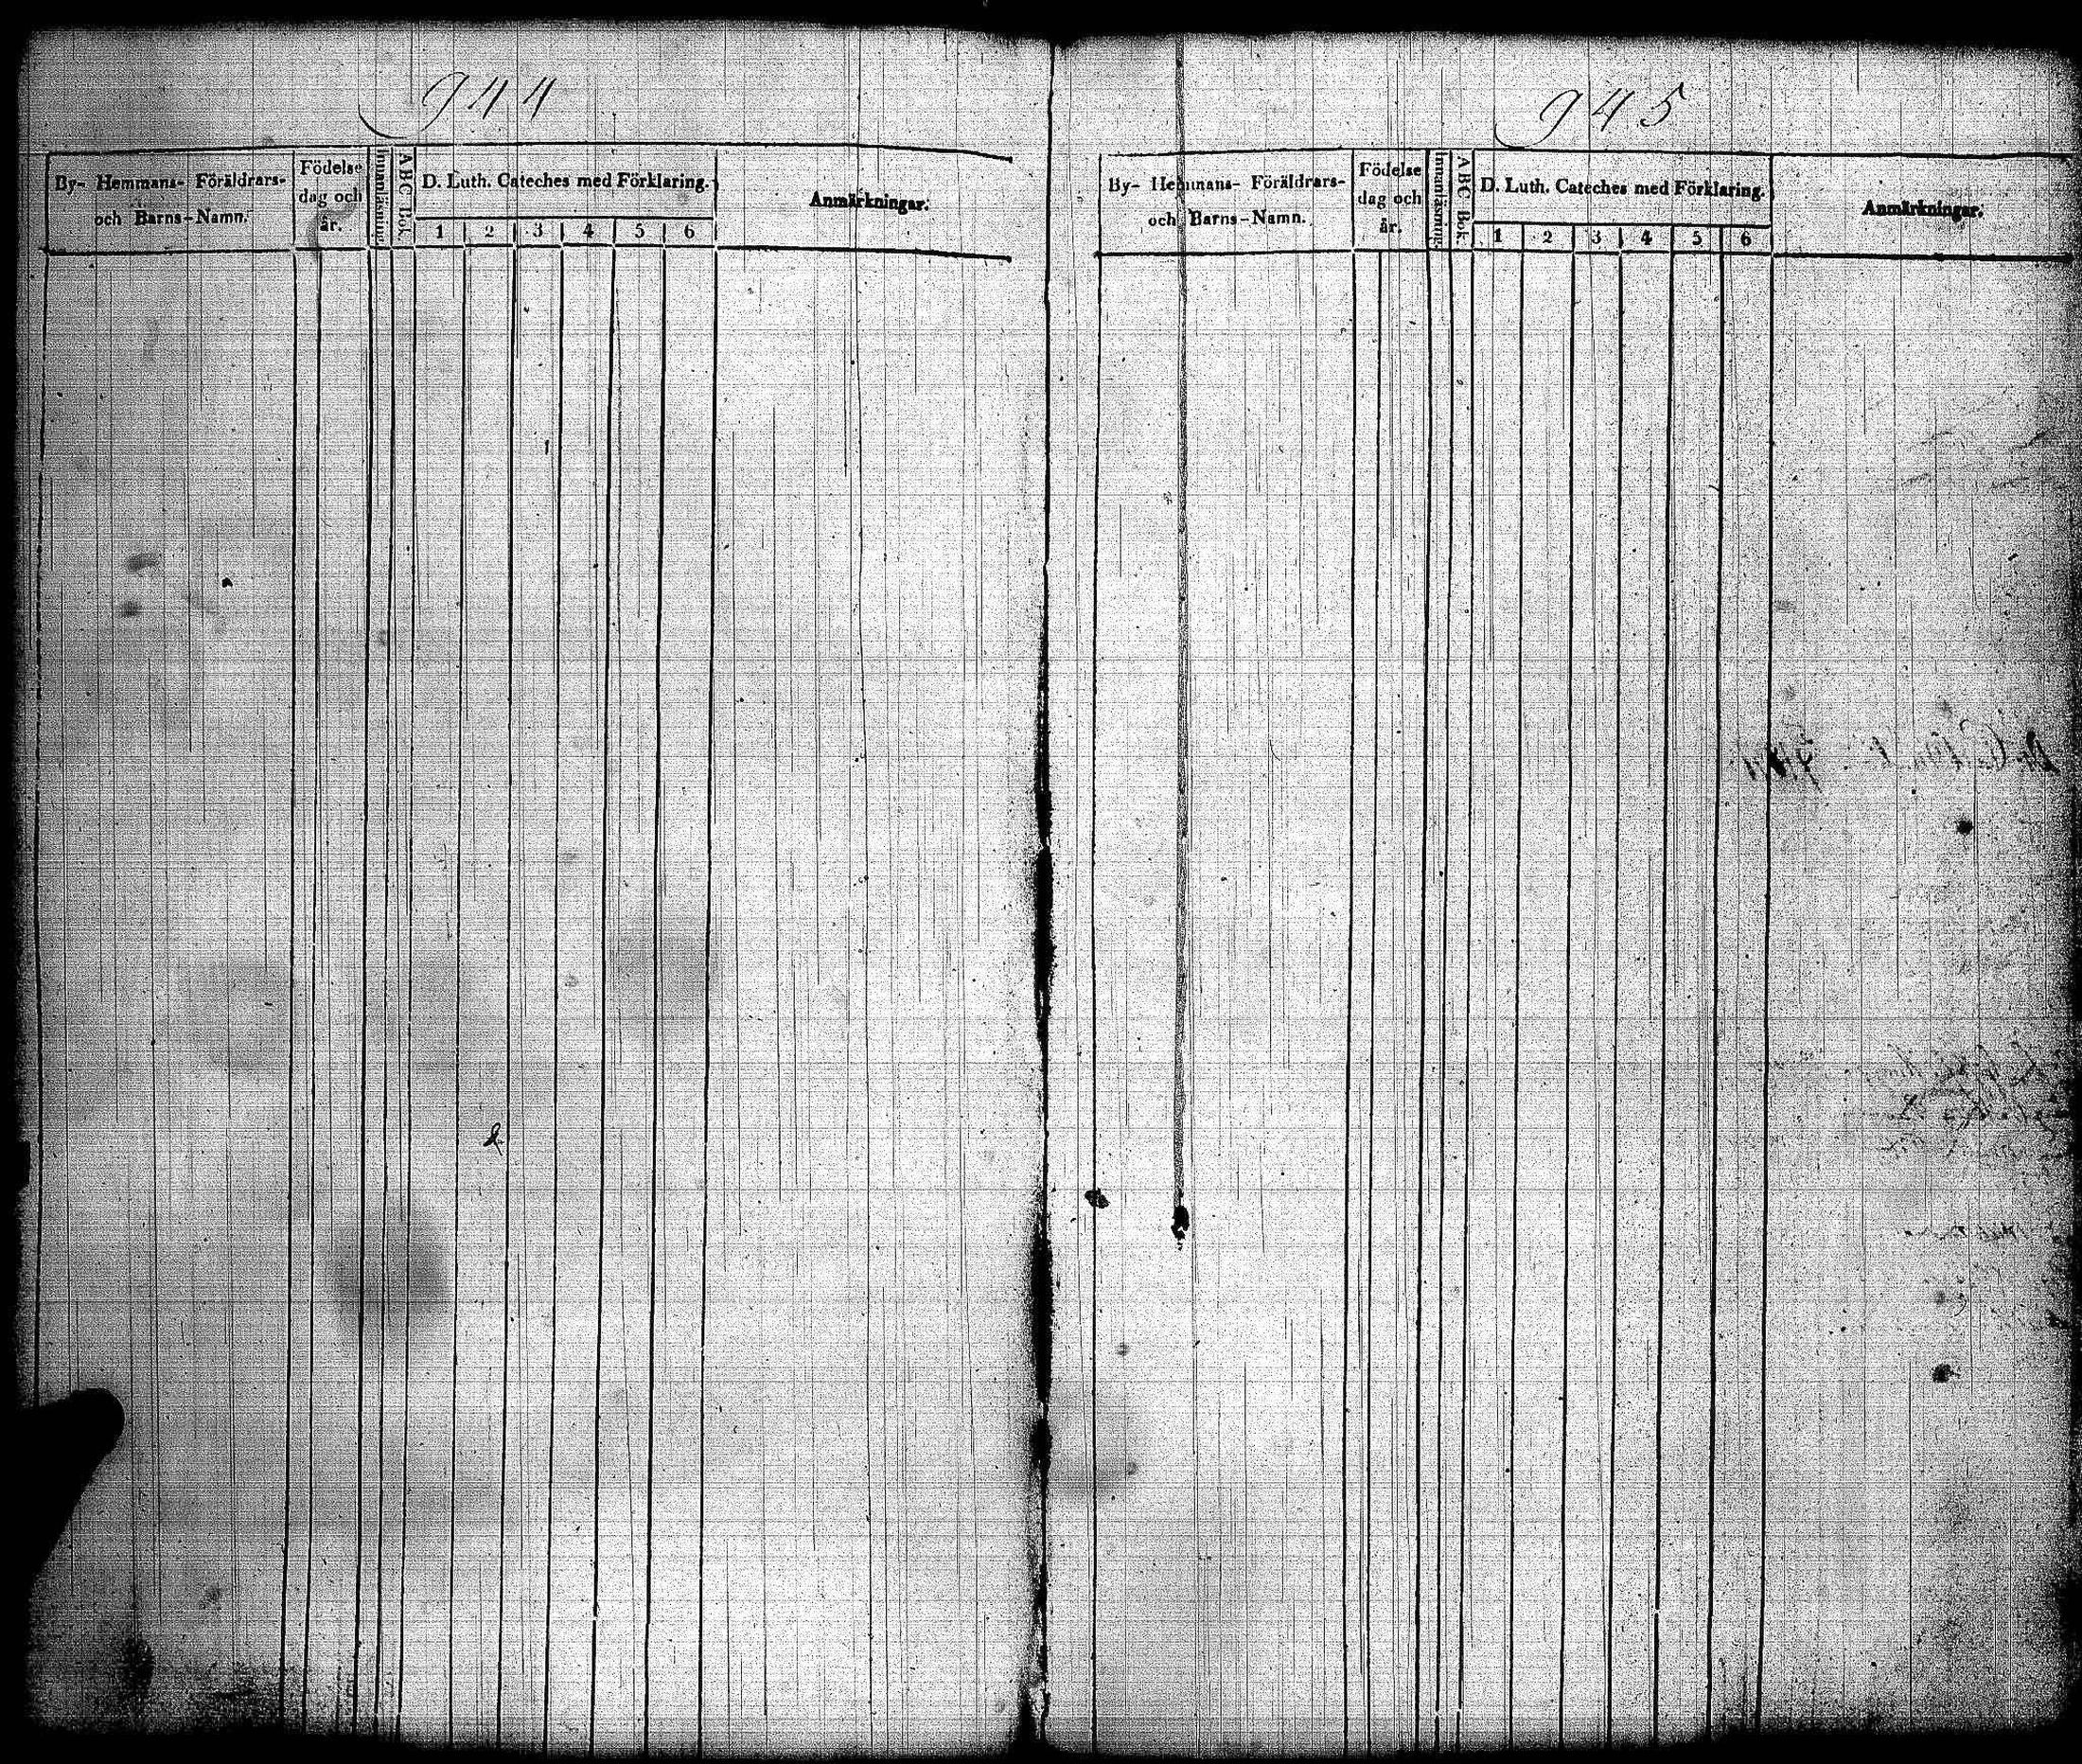 944
By- Hemmans- Föräldrars-
och Barns-Namn.
Födelse
dag och
år.
Innanläsning.
ABC Bok.
D. Luth. Cateches med Förklaring.
1 2 3 4 5 6
Anmärkningar.
945
By- Hemmans- Föräldrars-
och Barns-Namn.
Födelse
dag och
år.
Innanläsning.
ABC Bok.
D. Luth. Cateches med Förklaring.
1 2 3 4 5 6
Anmärkningar.